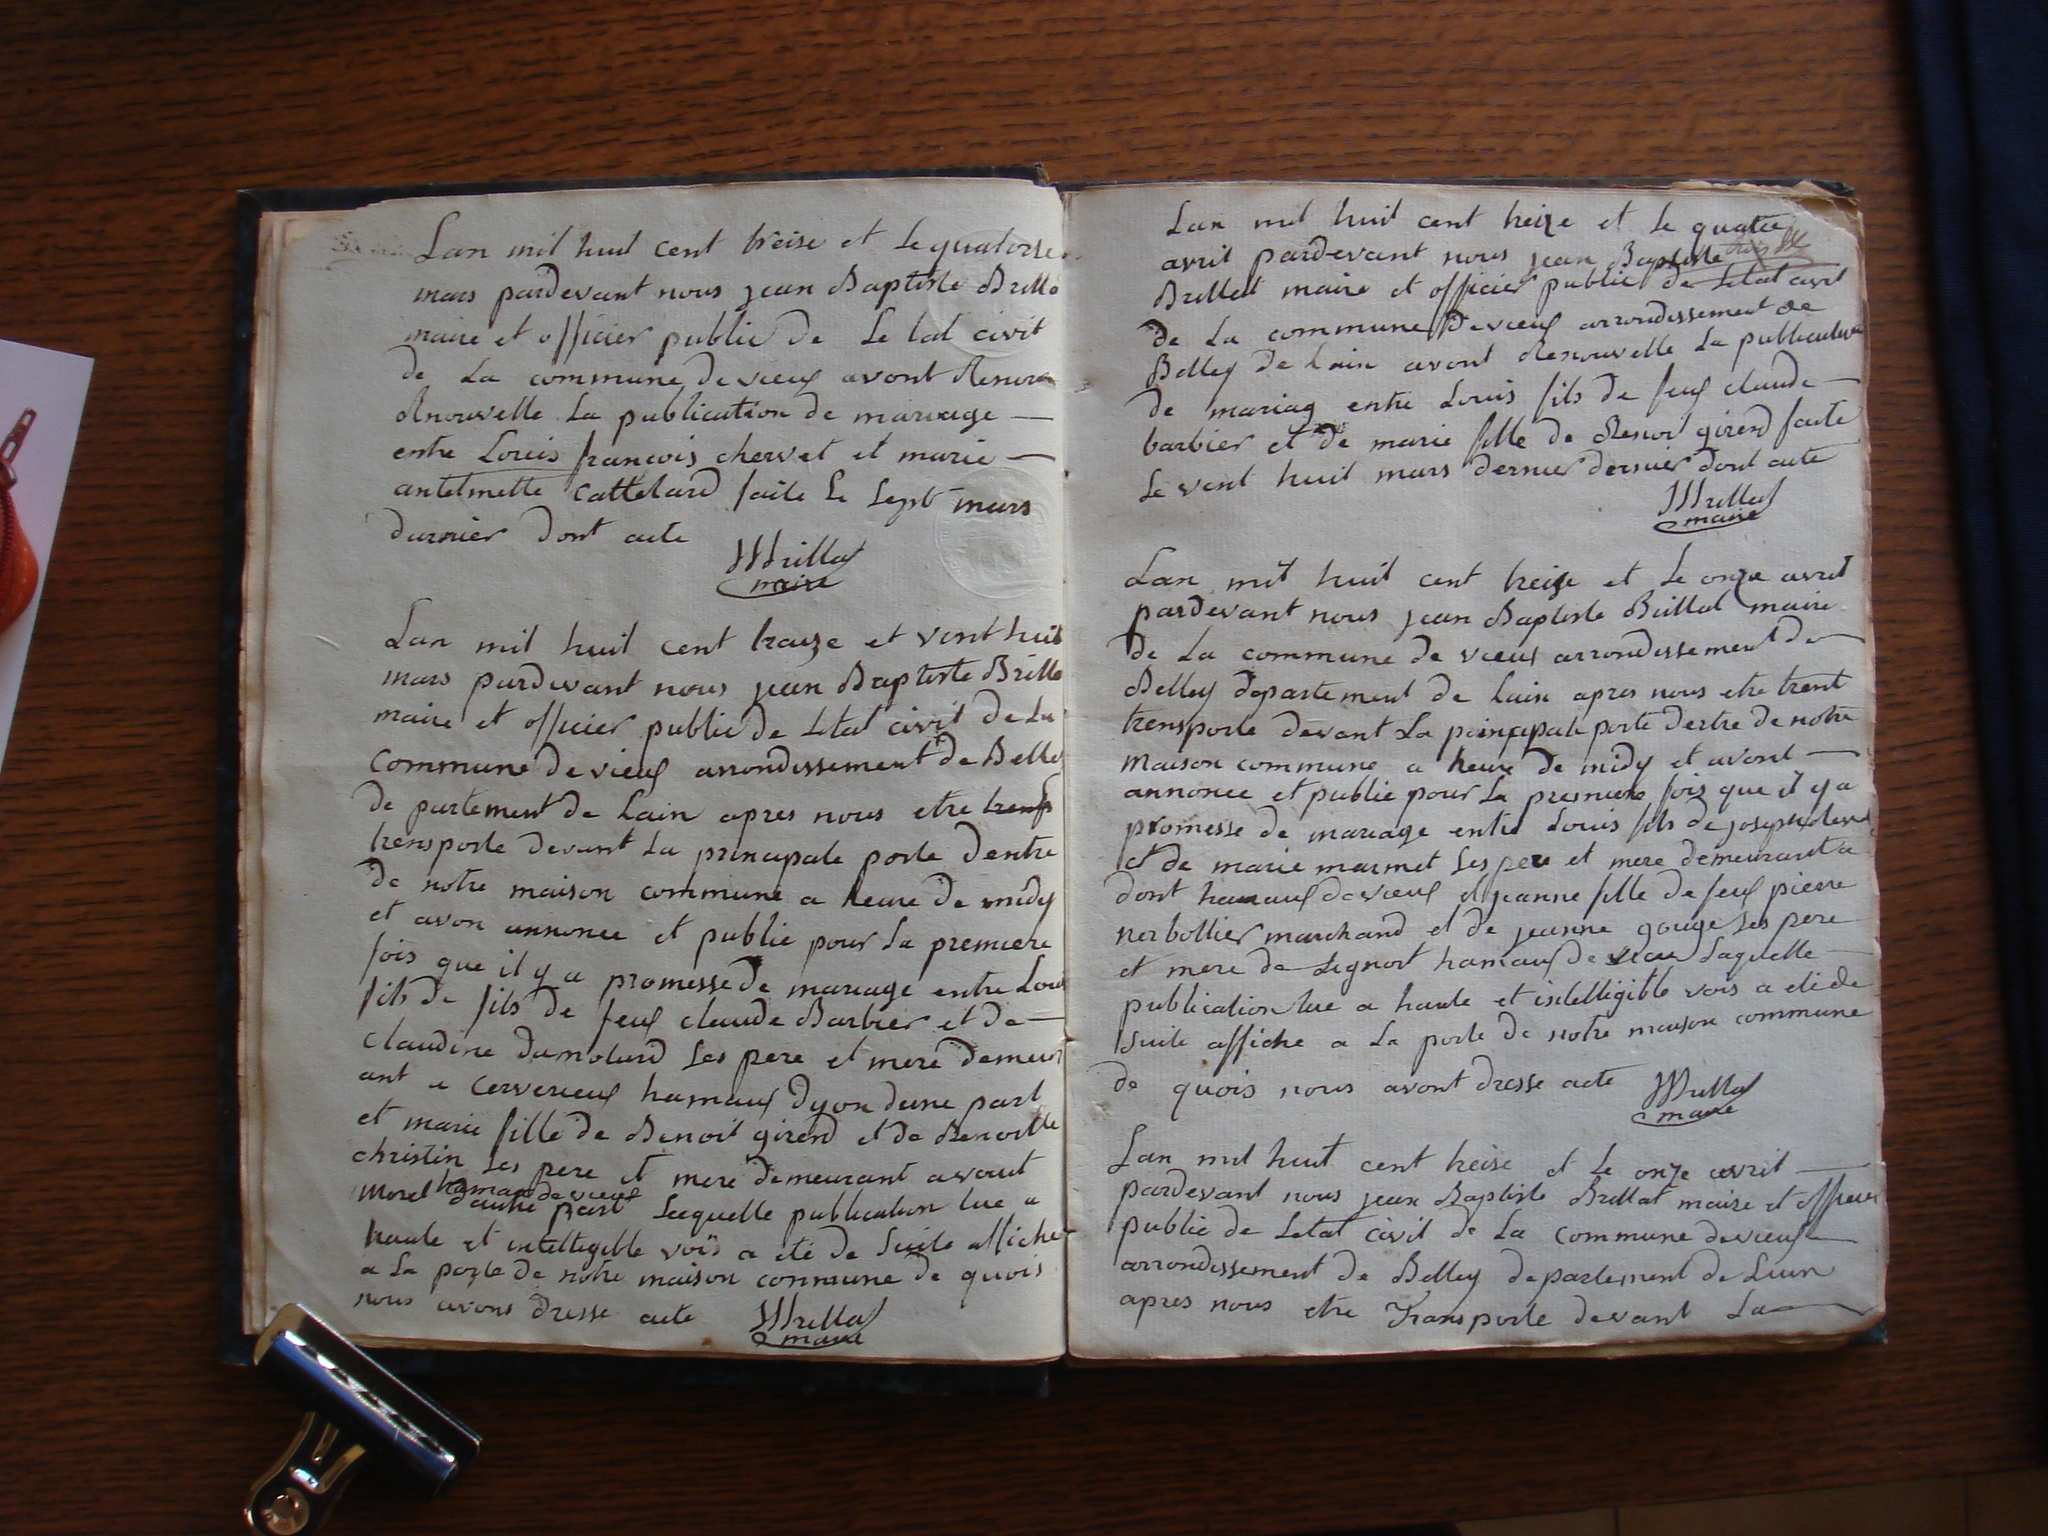 Lan mil huit cent treise et Le quatorse
mars pardevant nous jean Baptiste Brilla
maire et officier public de Le tat civit
de La commune de vieuf avont Renouv
Rnouvelle La publication de mariage
entre Loris francois chervet et marie
antelmette Cattelard faite Le Sept mars
durnier dont acte
Brillat
maire
Lan mil huit cent traize et vent huit
mars pardevant nous jean Baptiste Brilla
maire et officier public de Letat civit de La
Commune de vieuf arrondissement de Belley
de partement de Lain apres nous etre
trensporte devant La principale porte dentre
de notre maison commune a heure de midy
et avon annonce et publie pour La premiere
fois que il y a promesse de mariage entre Loui
fils de fils de feuf claude Barbier et de
Claudine dumolard Les pere et mere demeur
ant a Cerverieuf hamauf dyon dune part
et marie fille de Benoit girerd et de Benoitte
christin Les pere et mere demeurant a vout
hamau de vieuf
morel dautre part Lacquelle publication lue a
haute et intelligible vois a ete de Suite affiche
a La porte de notre maison commune de quois
nous avons dresse acte
Brillat
maire
Lan mil huit cent treize et Le quatre
avrit pardevant nous jean Baptiste
Brillat maire et officier public de Letat civit
de La commune de vieuf arrondissement de
Belley de Lain avont Renouvelle La publication
de mariag entre Louis fils de feuf claude
barbier et de marie fille de Benoi girerd faite
Le vent huit mars dernier dernier dont acte
Brillat
maire
Lan mil huit cent treize et Le onze avrit
pardevant nous jean Baptiste Brillat maire
de La commune de vieuf arrondissement de
Belley departement de Lain apres nous etre trent
trensporte devant La principale porte dertre de notre
maison commune a heure de midy et avont
annonce et publie pour La premiere fois que il y a
promesse de mariage entre Louis fils de joseph
et de marie marmet Les pere et mere demeurant a
dont hamauf de vieuf et jeanne fille de feuf pierre
nerbollier marchand et de jeanne gouge Les pere
et mere de Lignort hamauf de vieu Laquelle
publication lue a haute et intelligible vois a ete de
Suite affiche a La porte de notre maison commune
de quois nous avont dresse acte
Brillat
maire
Lan mil huit cent treise et Le onze avrit
pardevant nous jean Baptiste Brillat maire et officier
public de Letat civit de La Commune de vieuf
arrondissement de Belley departement de Lain
apres nous etre Transporte devant La